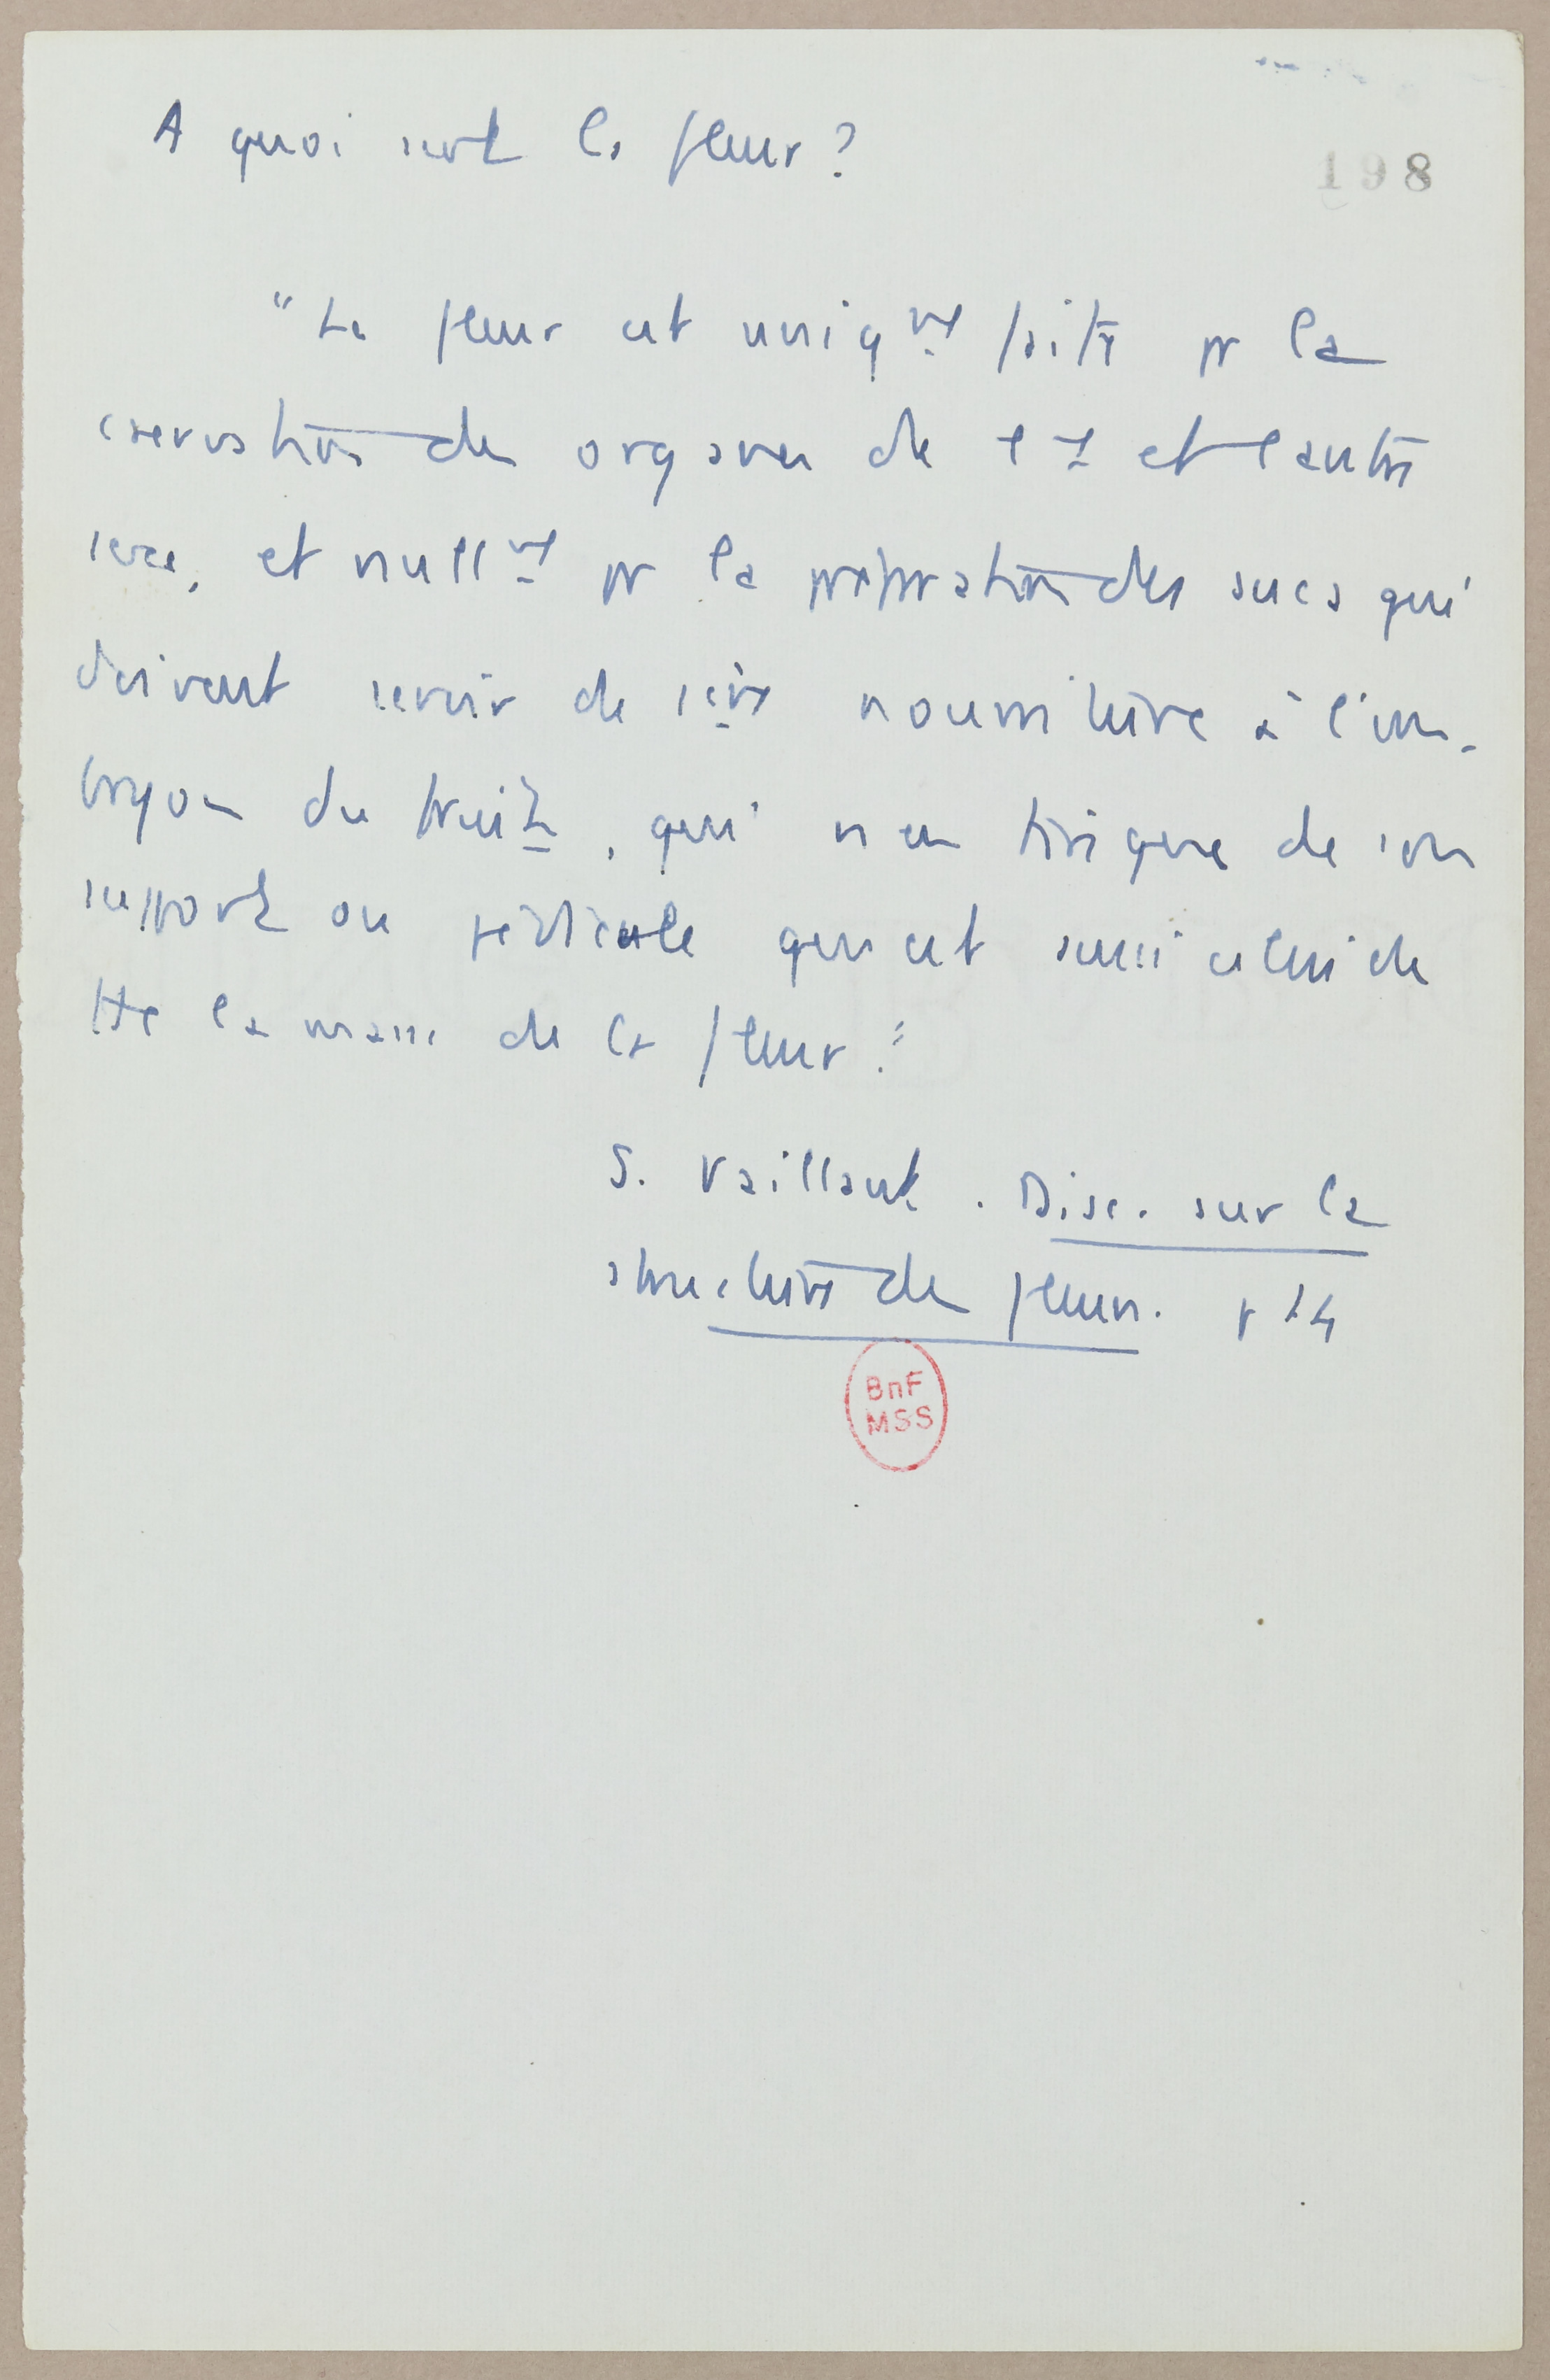 A quoi sert la fleur ?
198
"La fleur est uniqmt faite pr la
cservation des organes de l'1 et l'autre
sexe, et nullmt pr la préparation des sucs qui
doivent servir de 1ère nourriture à l'em-
bryon du fruit, qui n'en tire que de son
support ou pédicule qui est aussi celui de
tte la masse de la fleur."
S. Vaillant. Disc. sur la
structure des fleurs. p 14
BnF
MSS